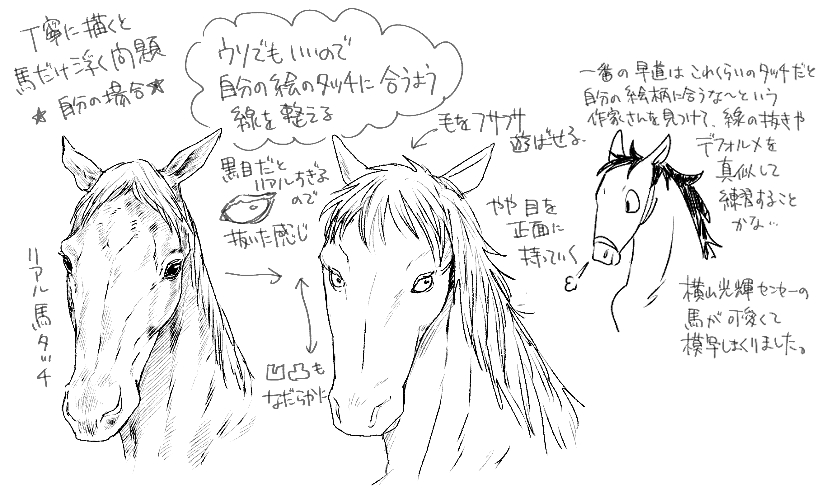 丁寧に描くと
馬だけ浮く問題
★自分の場合★
ウソでもいいので
自分の絵のタッチに合うよう
線を整える
リアル馬タッチ
黒目だと
リアルすぎる
ので
抜いた感じ
毛をフサフサ
遊ばせる。
やや目を
正面に
持っていく
凹凸も
なだらかに
一番の早道はこれくらいのタッチだと
自分の絵柄に合うな〜という
作家さんを見つけて、線の抜きや
デフォルメを
真似して
練習すること
かな…
横山光輝センセーの
馬が可愛くて
模写しまくりました。